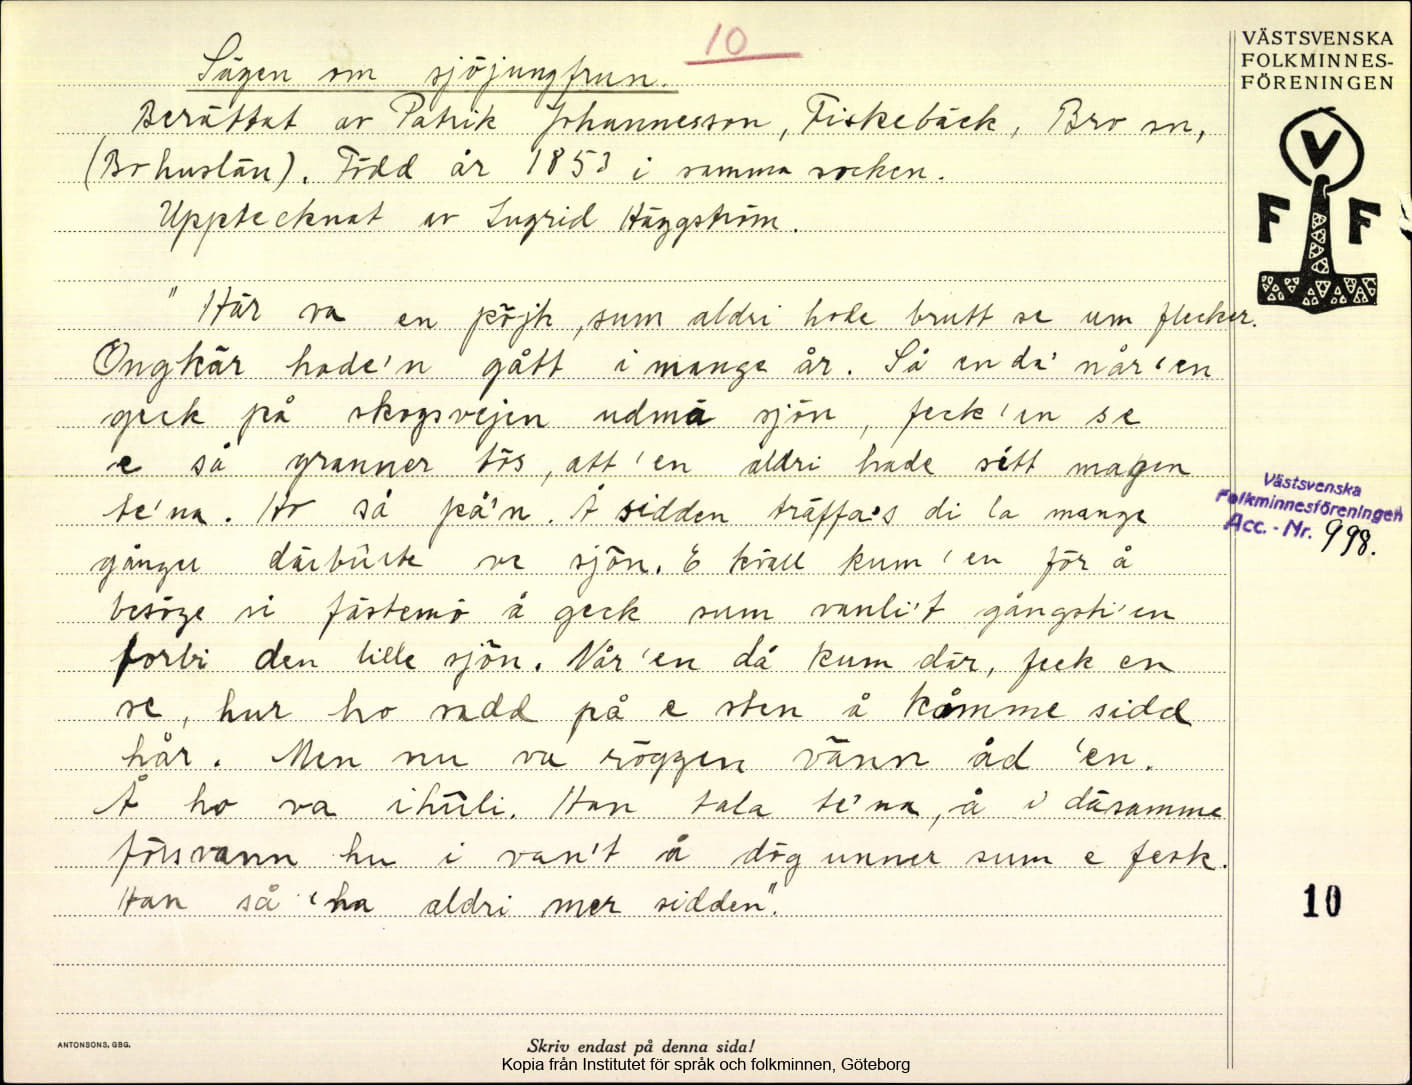 10
Sägen om sjöjungfrun.
Berättat av Patrik Johannesson, Fiskebäck, Bro sn,
(Bohuslän). Född år 1853 i samma socken.
Upptecknat av Ingrid Häggström.
"Här va en pöjk, sum aldri hode brutt se um flecker.
Ongkär hode'n gått i mange år. Så en da' når'en
geck på skogsvejen udmä sjön, feck'en se
e så granner tös, att'en aldri hade sett magen
te'na. Ho så på'n. Å sidden träffa's di la mange
gånger därbûrte ve sjön. E kväll kum'en för å
besöge si fästemö å geck sum vanli't gångsti'en
forbi den lille sjön. Når'en då kum där, feck en
se, hur ho sadd på e sten å kåmme sidd
hår. Men nu va röggen vänn åd 'en.
Å ho va ihûli. Han tala te'na, å i däsamme
försvann hu i van't å dög unner sum e fesk.
Han så 'na aldri mer sidden".
VÄSTSVENSKA
FOLKMINNES-
FÖRENINGEN
V
F F
Västsvenska
Folkminnesföreningen
Acc. - Nr. 998.
10
ANTONSONS, GBG.
Skriv endast på denna sida!
Kopia från Institutet för språk och folkminnen, Göteborg